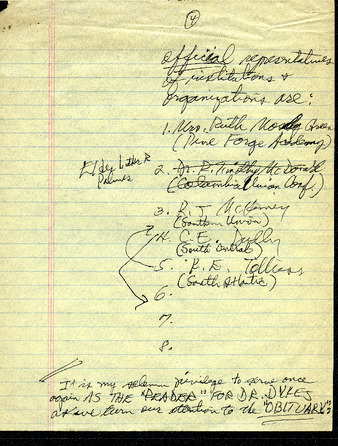 4
official representatives
of institutions &
organizations are:
1. Mrs. Ruth Mosby Green
(Pine Forge Academy)
Elder Luther R.
Palmer
2. Dr. R. Timothy McDonald
(Columbia Union Conf.)
3. R. T. McKenney
(Southern Union)
4. C. E. Dudley
(South Central)
5. R. E. Tolliver
(South Atlantic)
6.
7.
8.
It is my solemn privilege to serve once
again AS THE "READER" FOR DR. DYKES
as we turn our attention to the "OBITUARY"